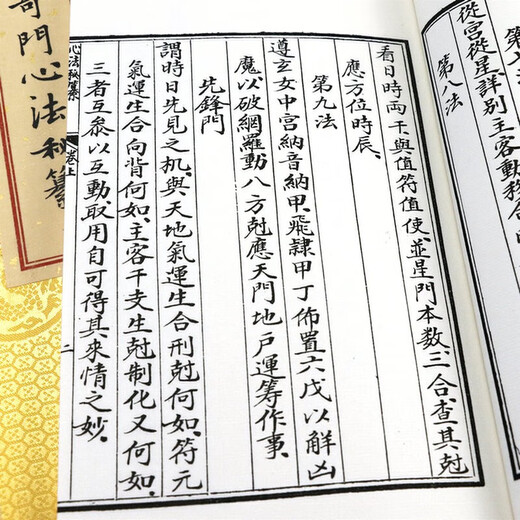 從宮從星詳別主客動
第八法
看日時兩干與值符值使並星門本數三合查其尅
應方位時辰
第九法
遵玄女中宮納音納甲飛隷甲丁佈置六戊以解凶
魔以破網羅動八方尅應天門地戶運筹作事
先鋒門
謂時日先見之机與天地氣運生合刑尅何如符元
氣運生合向背何如主客干支生尅制化又何如
三者互參以互動取用自可得其來情之妙
心法秘纂
卷上
二
奇門心法秘纂